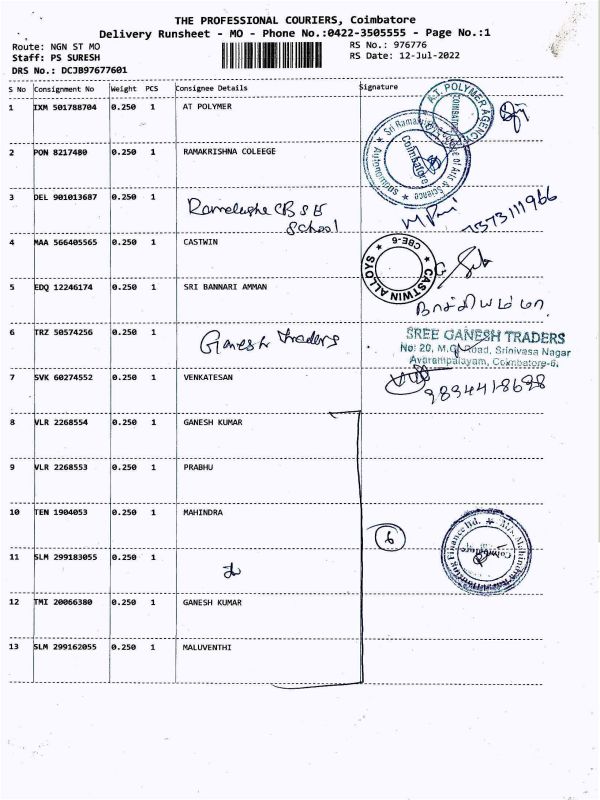 THE PROFESSIONAL COURIERS, Coimbatore
Delivery Runsheet - MO - Phone No.:0422-3505555 - Page No.:1
Route: NGN ST MO
RS No.: 976776
Staff: PS SURESH
RS Date: 12-Jul-2022
DRS No.: DCJB97677601
S No Consignment No Weight PCS Consignee Details Signature
1 IXM 501788704 0.250 1 AT POLYMER
A.T. POLYMER AGENCY
COIMBATORE
2 PON 8217480 0.250 1 RAMAKRISHNA COLEEGE
Sri Ramakrishna College of Arts & Science
Coimbatore
Autonomous
3 DEL 901013687 0.250 1
CBSE
School
7373111966
4 MAA 566405565 0.250 1 CASTWIN
CASTWIN ALLOYS
CBE-6
5 EDQ 12246174 0.250 1 SRI BANNARI AMMAN
6 TRZ 50574256 0.250 1 Ganesh Traders
SREE GANESH TRADERS
No: 20, M.G. Road, Srinivasa Nagar
Avarampalayam, Coimbatore-6.
7 SVK 60274552 1 0.250 VENKATESAN
8 VLR 2268554 0.250 1 GANESH KUMAR
9 VLR 2268553 0.250 1 PRABHU
10 TEN 1904053 0.250 1 MAHINDRA
6
11 SLM 299183055 0.250 1
12 TMI 20066380 0.250 1 GANESH KUMAR
13 SLM 299162055 0.250 1 MALUVENTHI